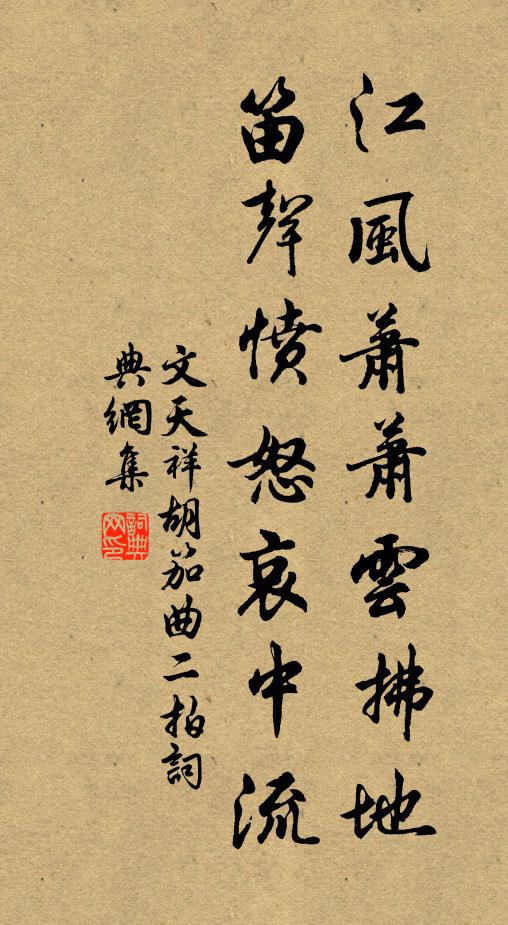 江風蕭蕭雲拂地
笛聲憤怒哀中流
文天祥胡笳曲二拍詞
典網集
詞典
网印